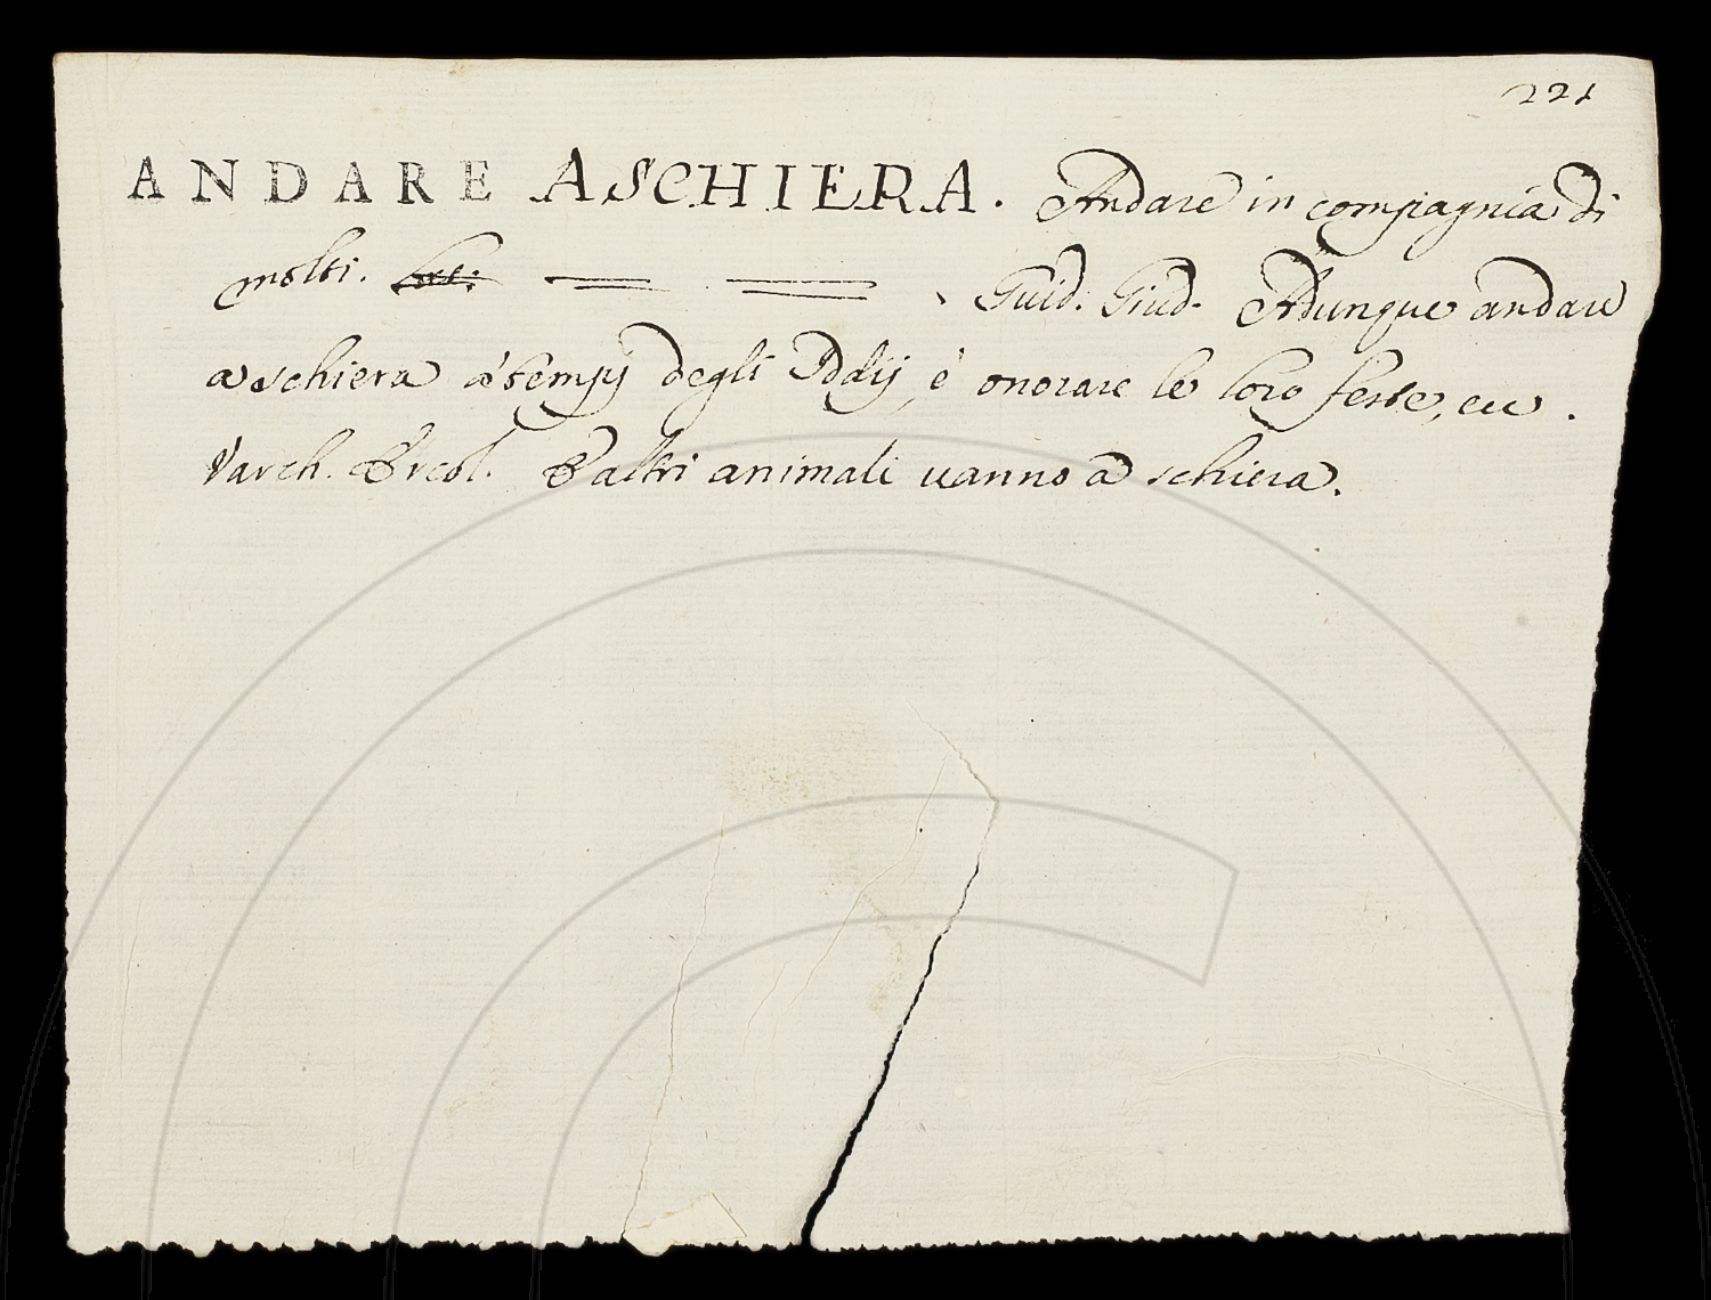 221
ANDARE A SCHIERA. Andare in compagnia di
molti. Guid. Giud. Adunque andare
a schiera a' tempij degli Iddij, e onorare le loro feste, ec.
Varch. Ercol. E altri animali vanno a schiera.